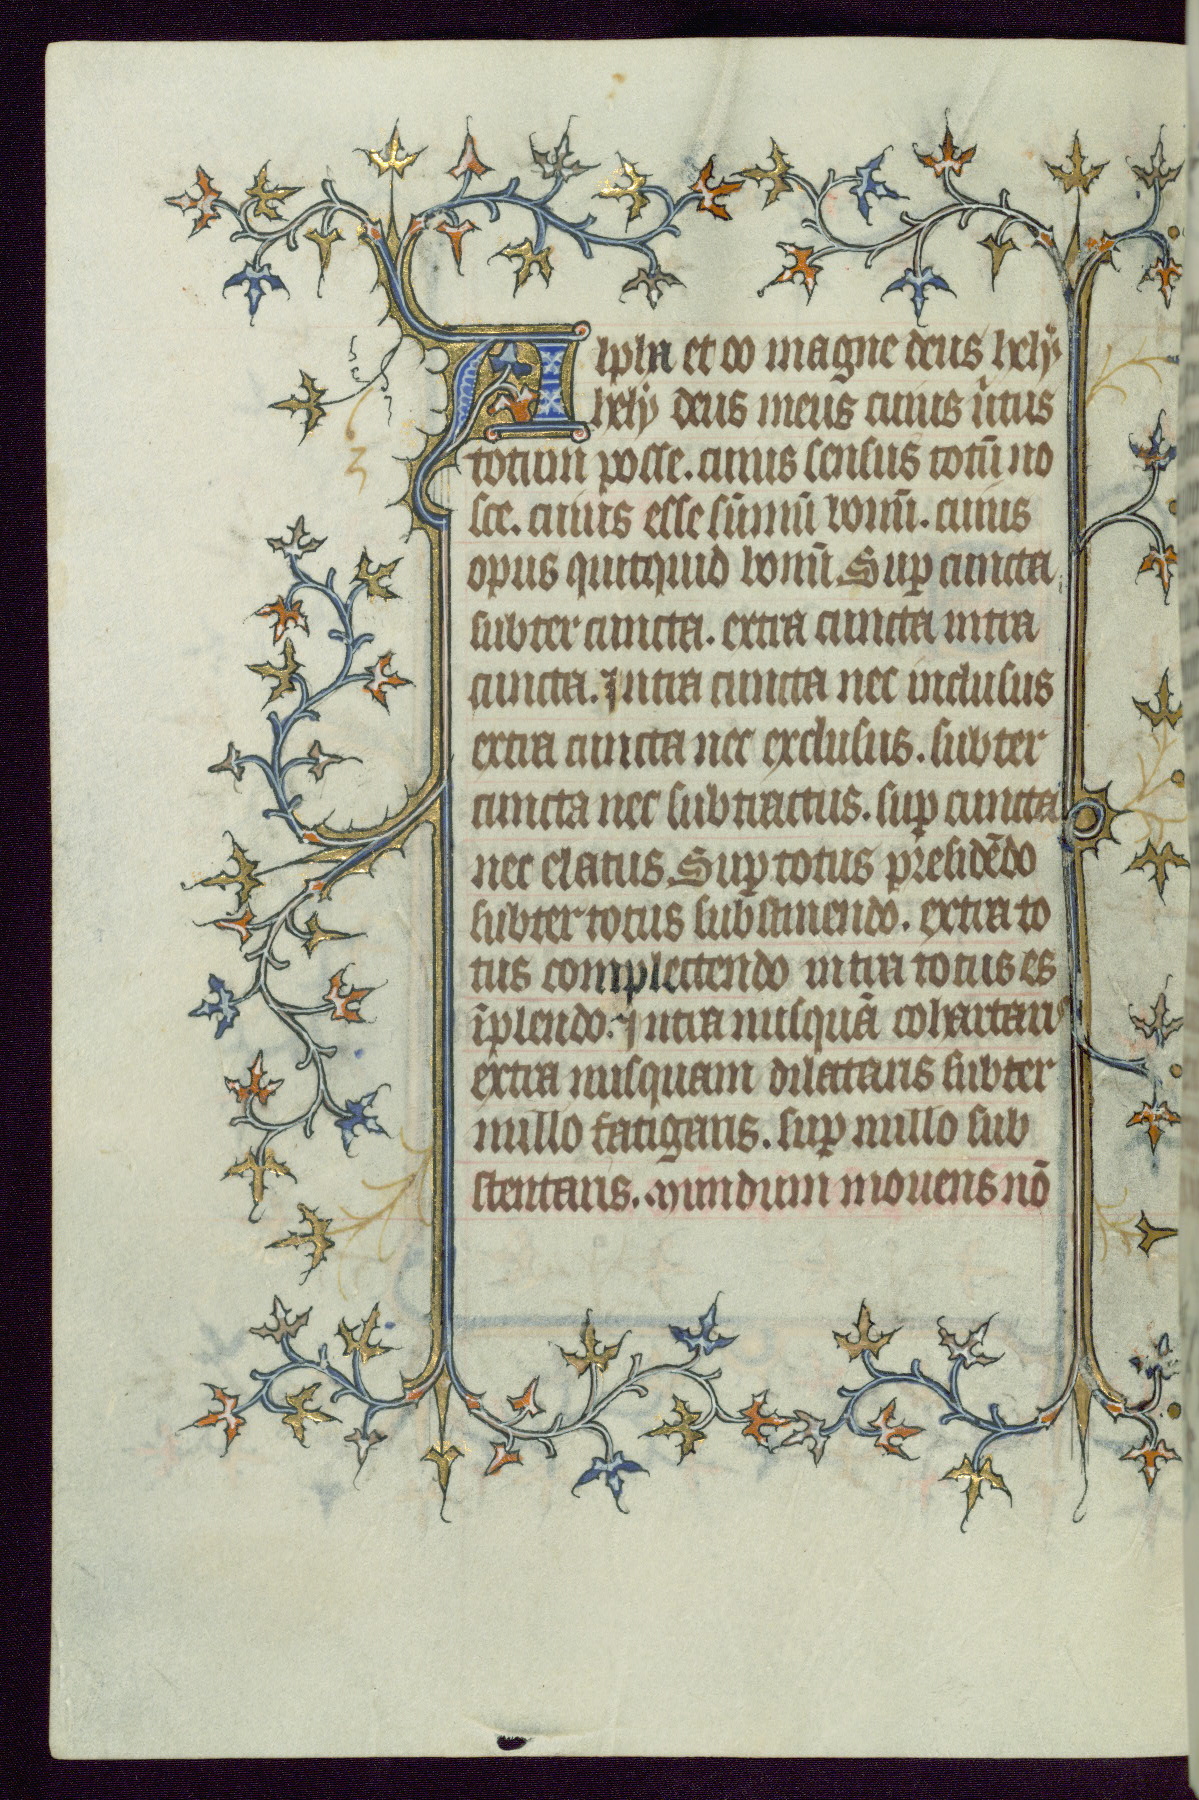 Alpha et ω magne deus hely
hely deus meus cuius u̇tus
totum posse. cuius sensus totū no
sce. cuius esse sūmū bonū. cuius
opus quitquid bonū. Suꝑ cuncta
subter cuncta. extra cuncta intra
cuncta. Intra cuncta nec inclusus
extra cuncta nec exclusus. subter
cuncta nec subtractus. suꝑ cuncta
nec elatus. Suꝑ totus presidēdo
subter totus substinendo. extra to
tus complectendo intra totus es
īplendo. Intra nusquā cohartaris
extra nusquam dilataris subter
nullo fatigaris. suꝑ nullo sub
stentaris. Mundum mouens nō